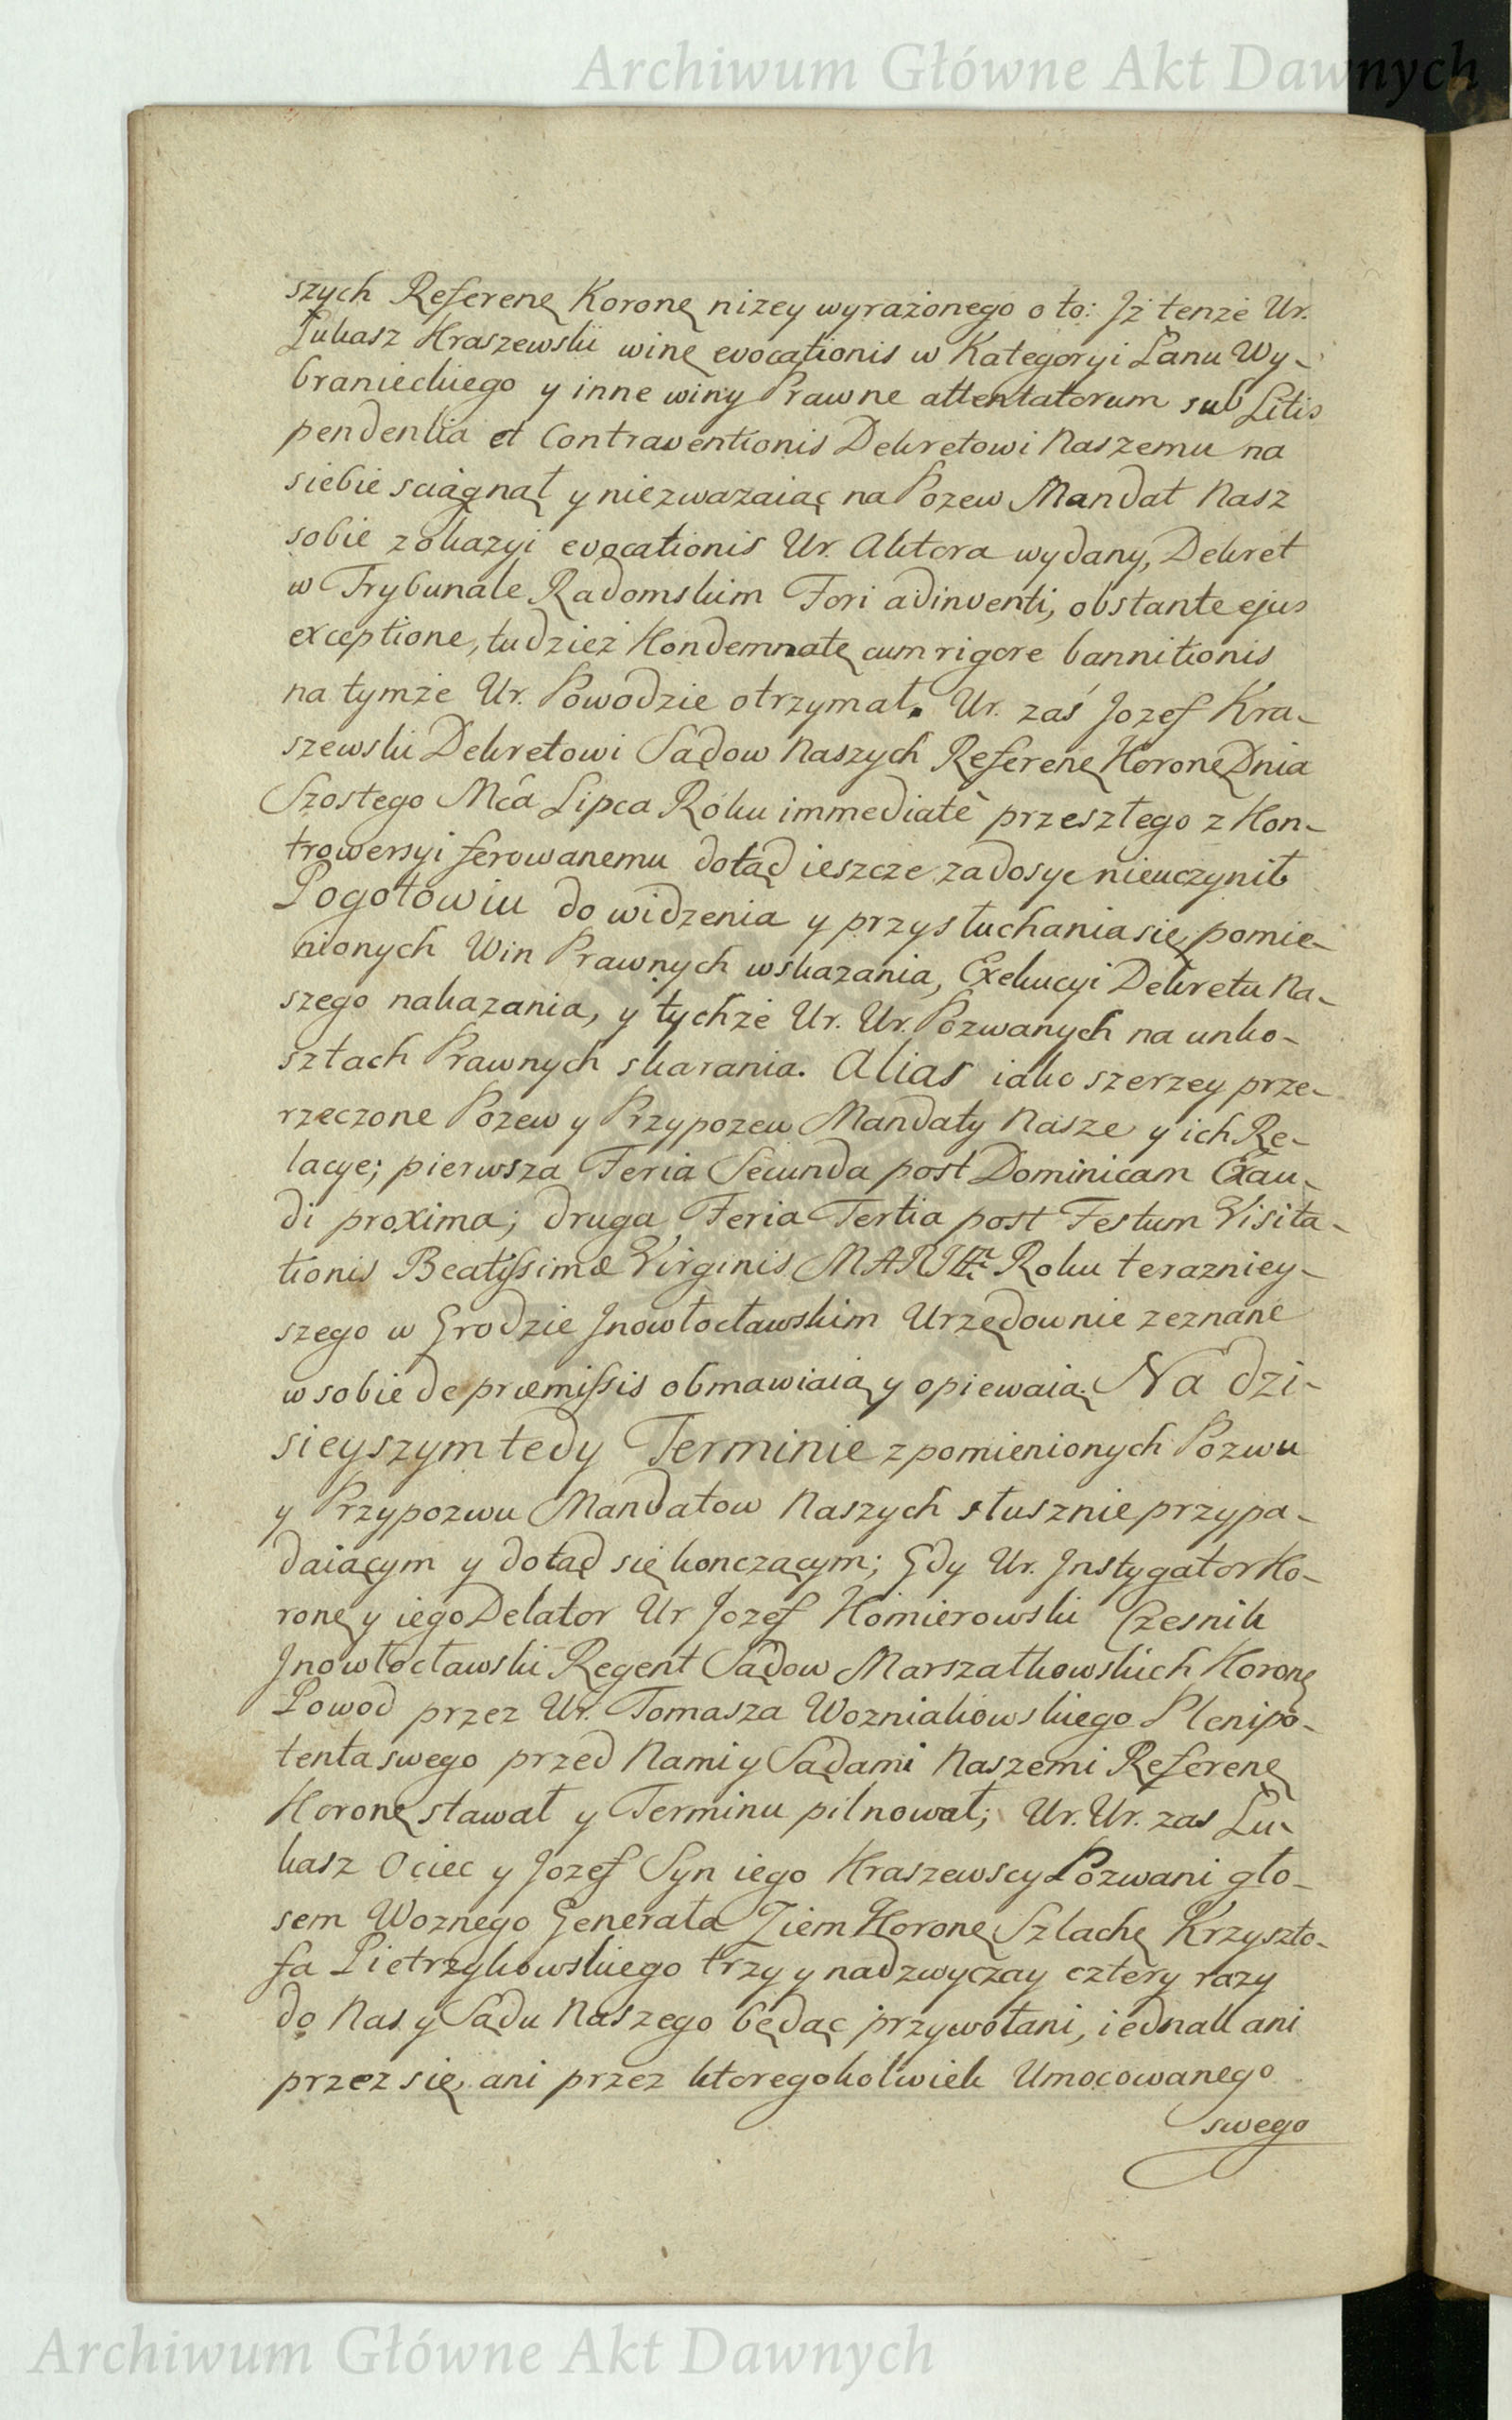 Archiwum Główne Akt Dawnych
szych Referenę Koronę nizey wyrażonego o to: Jż tenże Ur.
Łukasz Kraszewski winę evocationis w Kategoryi Łanu Wy-
branieckiego y inne winy Prawne attentatorum sub Litis
pendentia et Contraventionis Dekretowi Naszemu na
siebie sciągnął y niezwazaiąc na Pozew Mandat Nasz
sobie z okazyi evocationis Ur. Aktora wydany, Dekret
w Trybunale Radomskim Fori adinventi, obstante ejus
exceptione, tudzież Kondemnatę cum rigore bannitionis
na tymże Ur. Powodzie otrzymał. Ur. zaś Jozef Kra-
szewski Dekretowi Sądow Naszych Referenę Koronę Dnia
Szostego Mca Lipca Roku immediatè przeszłego z Kon-
trowersyi ferowanemu dotąd ieszcze zadosyc nieuczynił
Pogotowiu do widzenia y przysłuchania się pomie-
nionych Win Prawnych wskazania, Exekucyi Dekretu Na-
szego nakazania, y tychże Ur. Ur. Pozwanych na unko-
sztach Prawnych skarania. Alias iako szerzey prze-
rzeczone Pozew y Przypozew Mandaty Nasze y ich Re-
lacye; pierwsza Feria Secunda post Dominicam Exau-
di proxima; druga Feria Tertia post Festum Visita-
tionis Beatissimæ Virginis MARIÆ Roku terazniey-
szego w Grodzie Jnowłocławskim Urzędownie zeznane
w sobie de præmissis obmawiaią y opiewaią. Na dzi-
sieyszym tedy Terminie z pomienionych Pozwu
y Przypozwu Mandatow Naszych słusznie przypa-
daiącym y dotąd się konczącym; Gdy Ur. Jnstygator Ko-
ronę y iego Delator Ur Jozef Komierowski Czesnik
Jnowłocławski Regent Sądow Marszałkowskich Koronę
Powod przez Ur. Tomasza Wozniakowskiego Plenipo-
tenta swego przed Nami y Sądami Naszemi Referenę
Koronę stawał y Terminu pilnował; Ur. Ur. zas Łu-
kasz Ociec y Jozef Syn iego Kraszewscy Pozwani gło-
sem Woznego Generała Ziem Koronę Szlachę Krzyszto-
fa Pietrzykowskiego trzy y nadzwyczay cztery razy
do Nas y Sądu Naszego będąc przywołani, iednak ani
przez się ani przez ktoregokolwiek Umocowanego
swego
Archiwum Główne Akt Dawnych